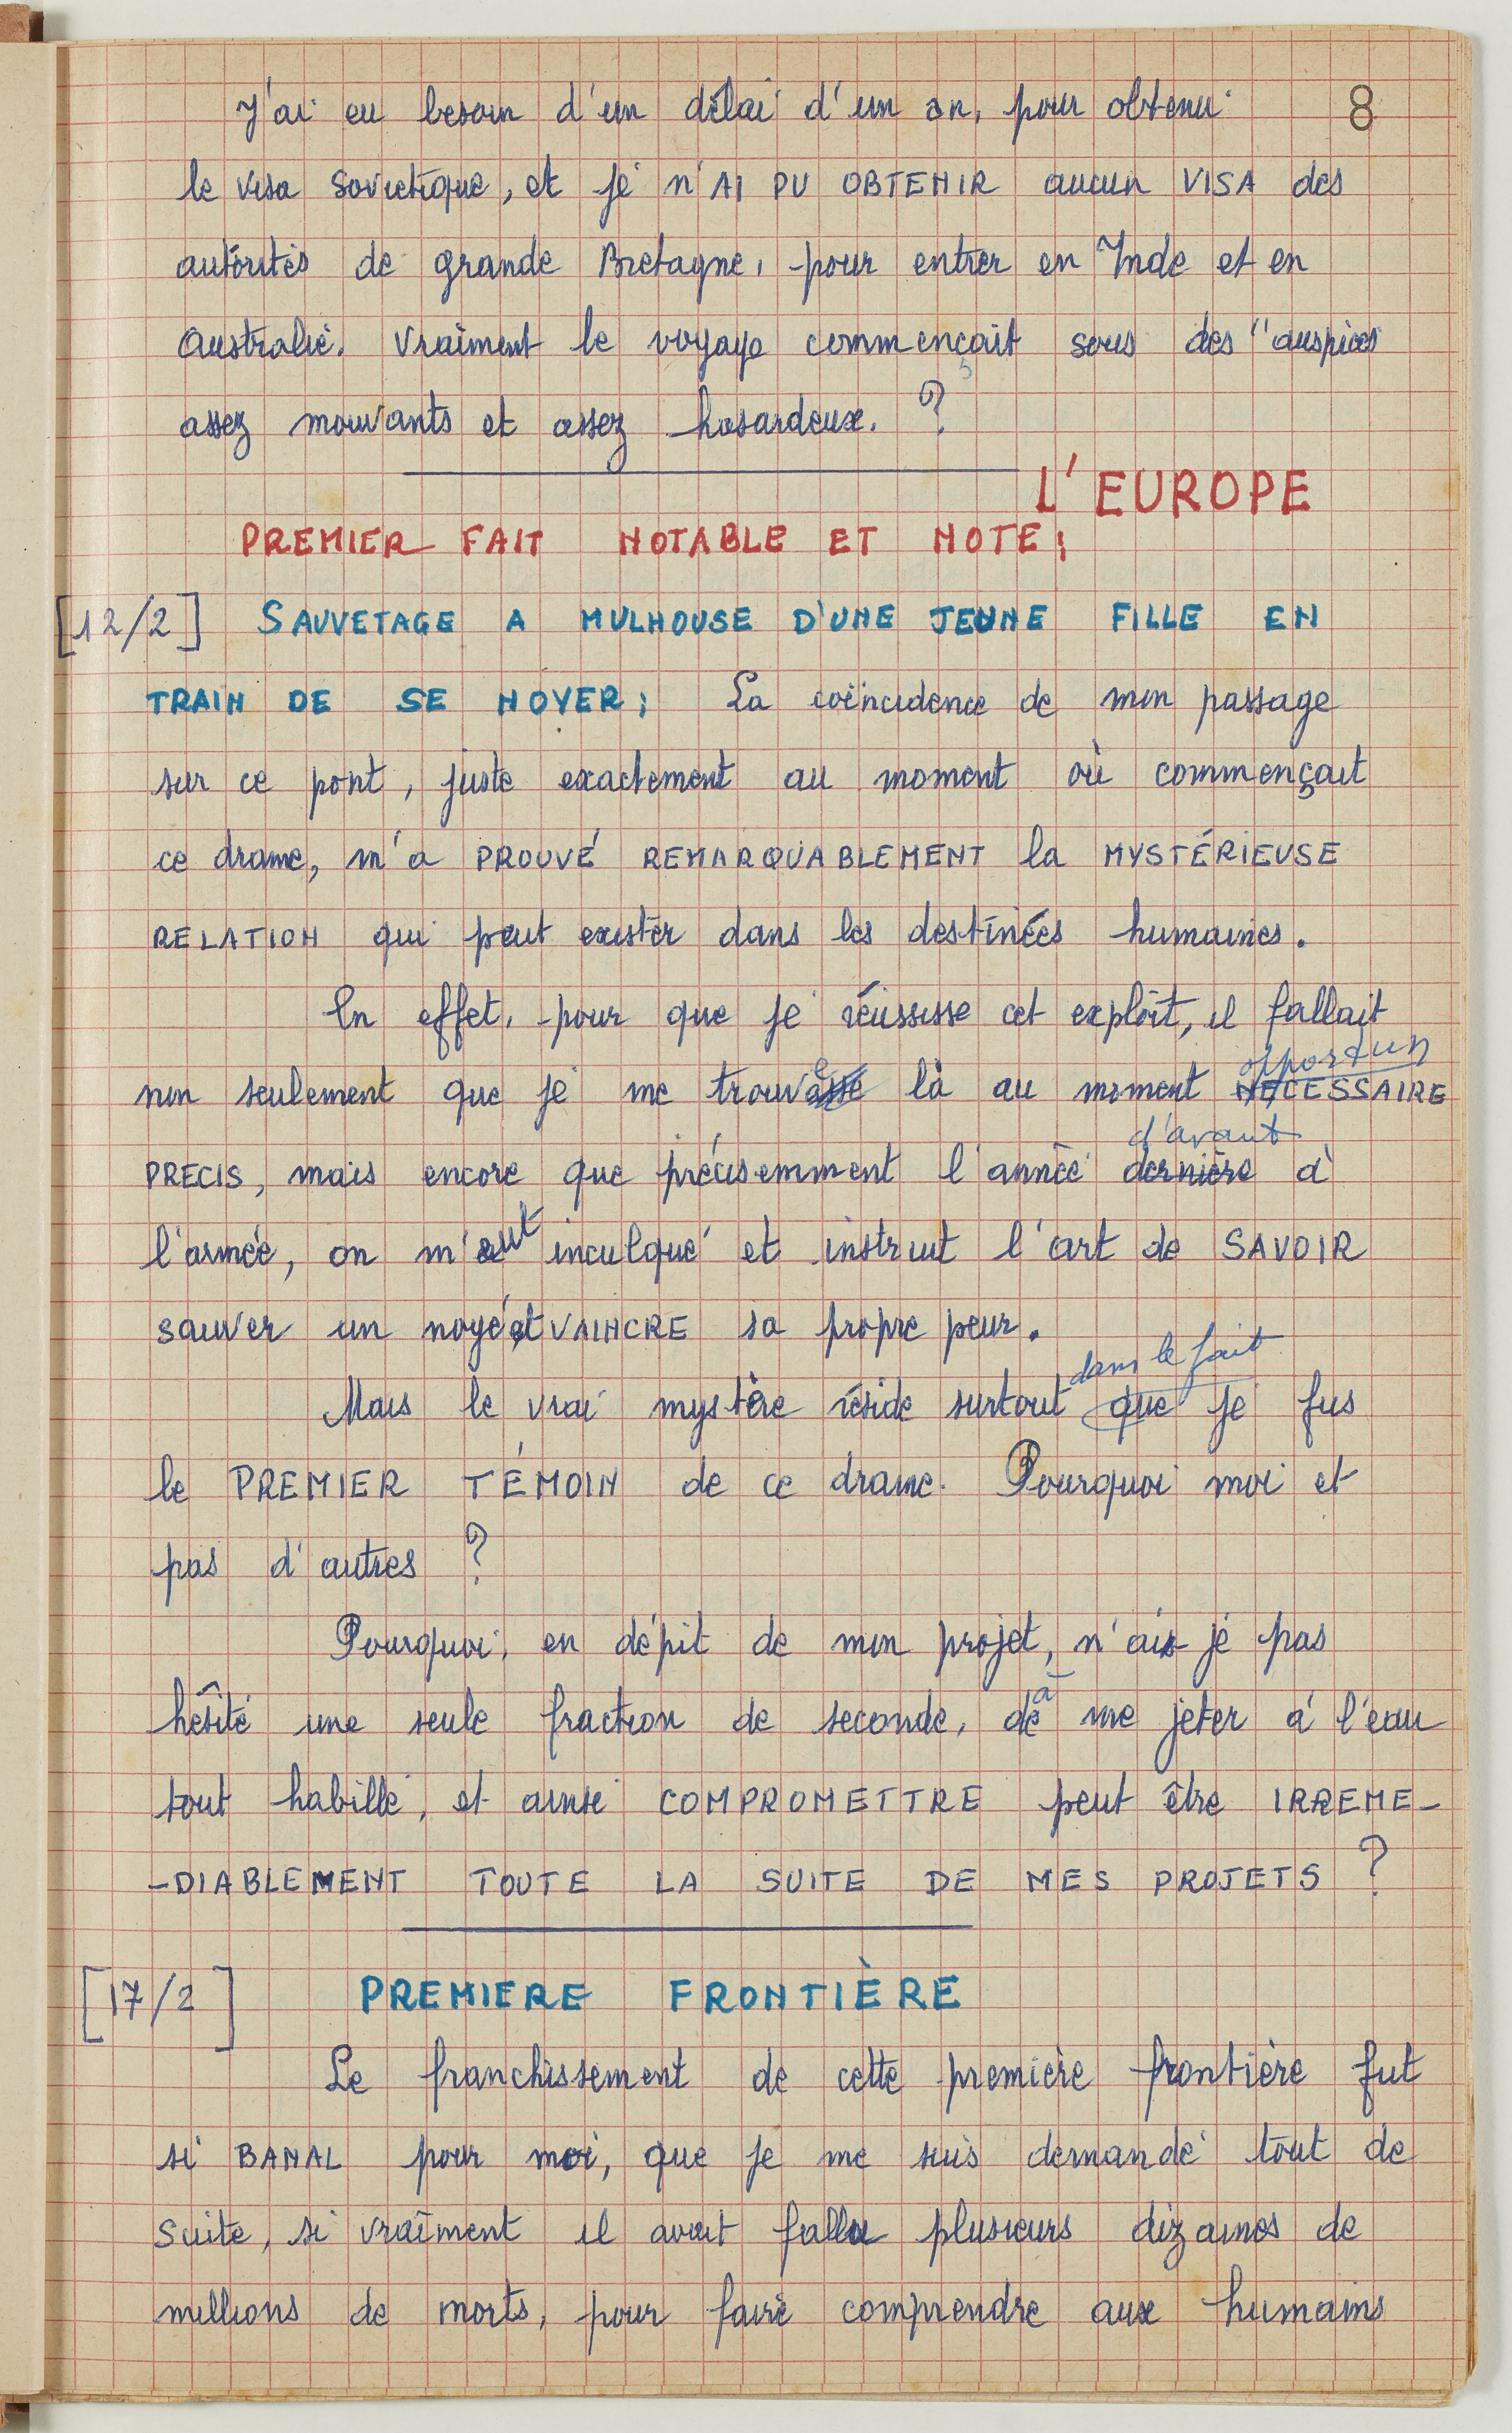 8
J'ai eu besoin d'un délai d'un an, pour obtenir
le visa soviétique, et je n'AI PU OBTENIR aucun VISA des
autorités de grande Bretagne, pour entrer en Inde et en
Australie. Vraiment le voyage commençait sous des "auspices
assez mouvants et assez hasardeux. ?
L'EUROPE
PREMIER FAIT NOTABLE ET NOTE;
[12/2] SAUVETAGE A MULHOUSE D'UNE JEUNE FILLE EN
TRAIN DE SE NOYER; La coïncidence de mon passage
sur ce pont, juste exactement au moment où commençait
ce drame, m'a PROUVÉ REMARQUABLEMENT la MYSTÉRIEUSE
RELATION qui peut exister dans les destinées humaines.
En effet, pour que je réussisse cet exploit, il fallait
opportun
non seulement que je me trouve là au moment NECESSAIRE
d'avant
PRECIS, mais encore que précisemment l'année dernière à
l'armée, on m'eut inculqué et instruit l'art de SAVOIR
sauver un noyé et VAINCRE sa propre peur.
dans le fait
Mais le vrai mystère réside surtout que je fus
le PREMIER TÉMOIN de ce drame. Pourquoi moi et
pas d'autres ?
Pourquoi, en dépit de mon projet, n'ai je pas
à
hésité une seule fraction de seconde, de me jeter à l'eau
tout habillé, et ainsi COMPROMETTRE peut être IRREME-
-DIABLEMENT TOUTE LA SUITE DE MES PROJETS ?
[17/2] PREMIERE FRONTIÈRE
Le franchissement de cette première frontière fut
si BANAL pour moi, que je me suis demandé tout de
suite, si vraiment il avait fallu plusieurs dizaines de
millions de morts, pour faire comprendre aux humains